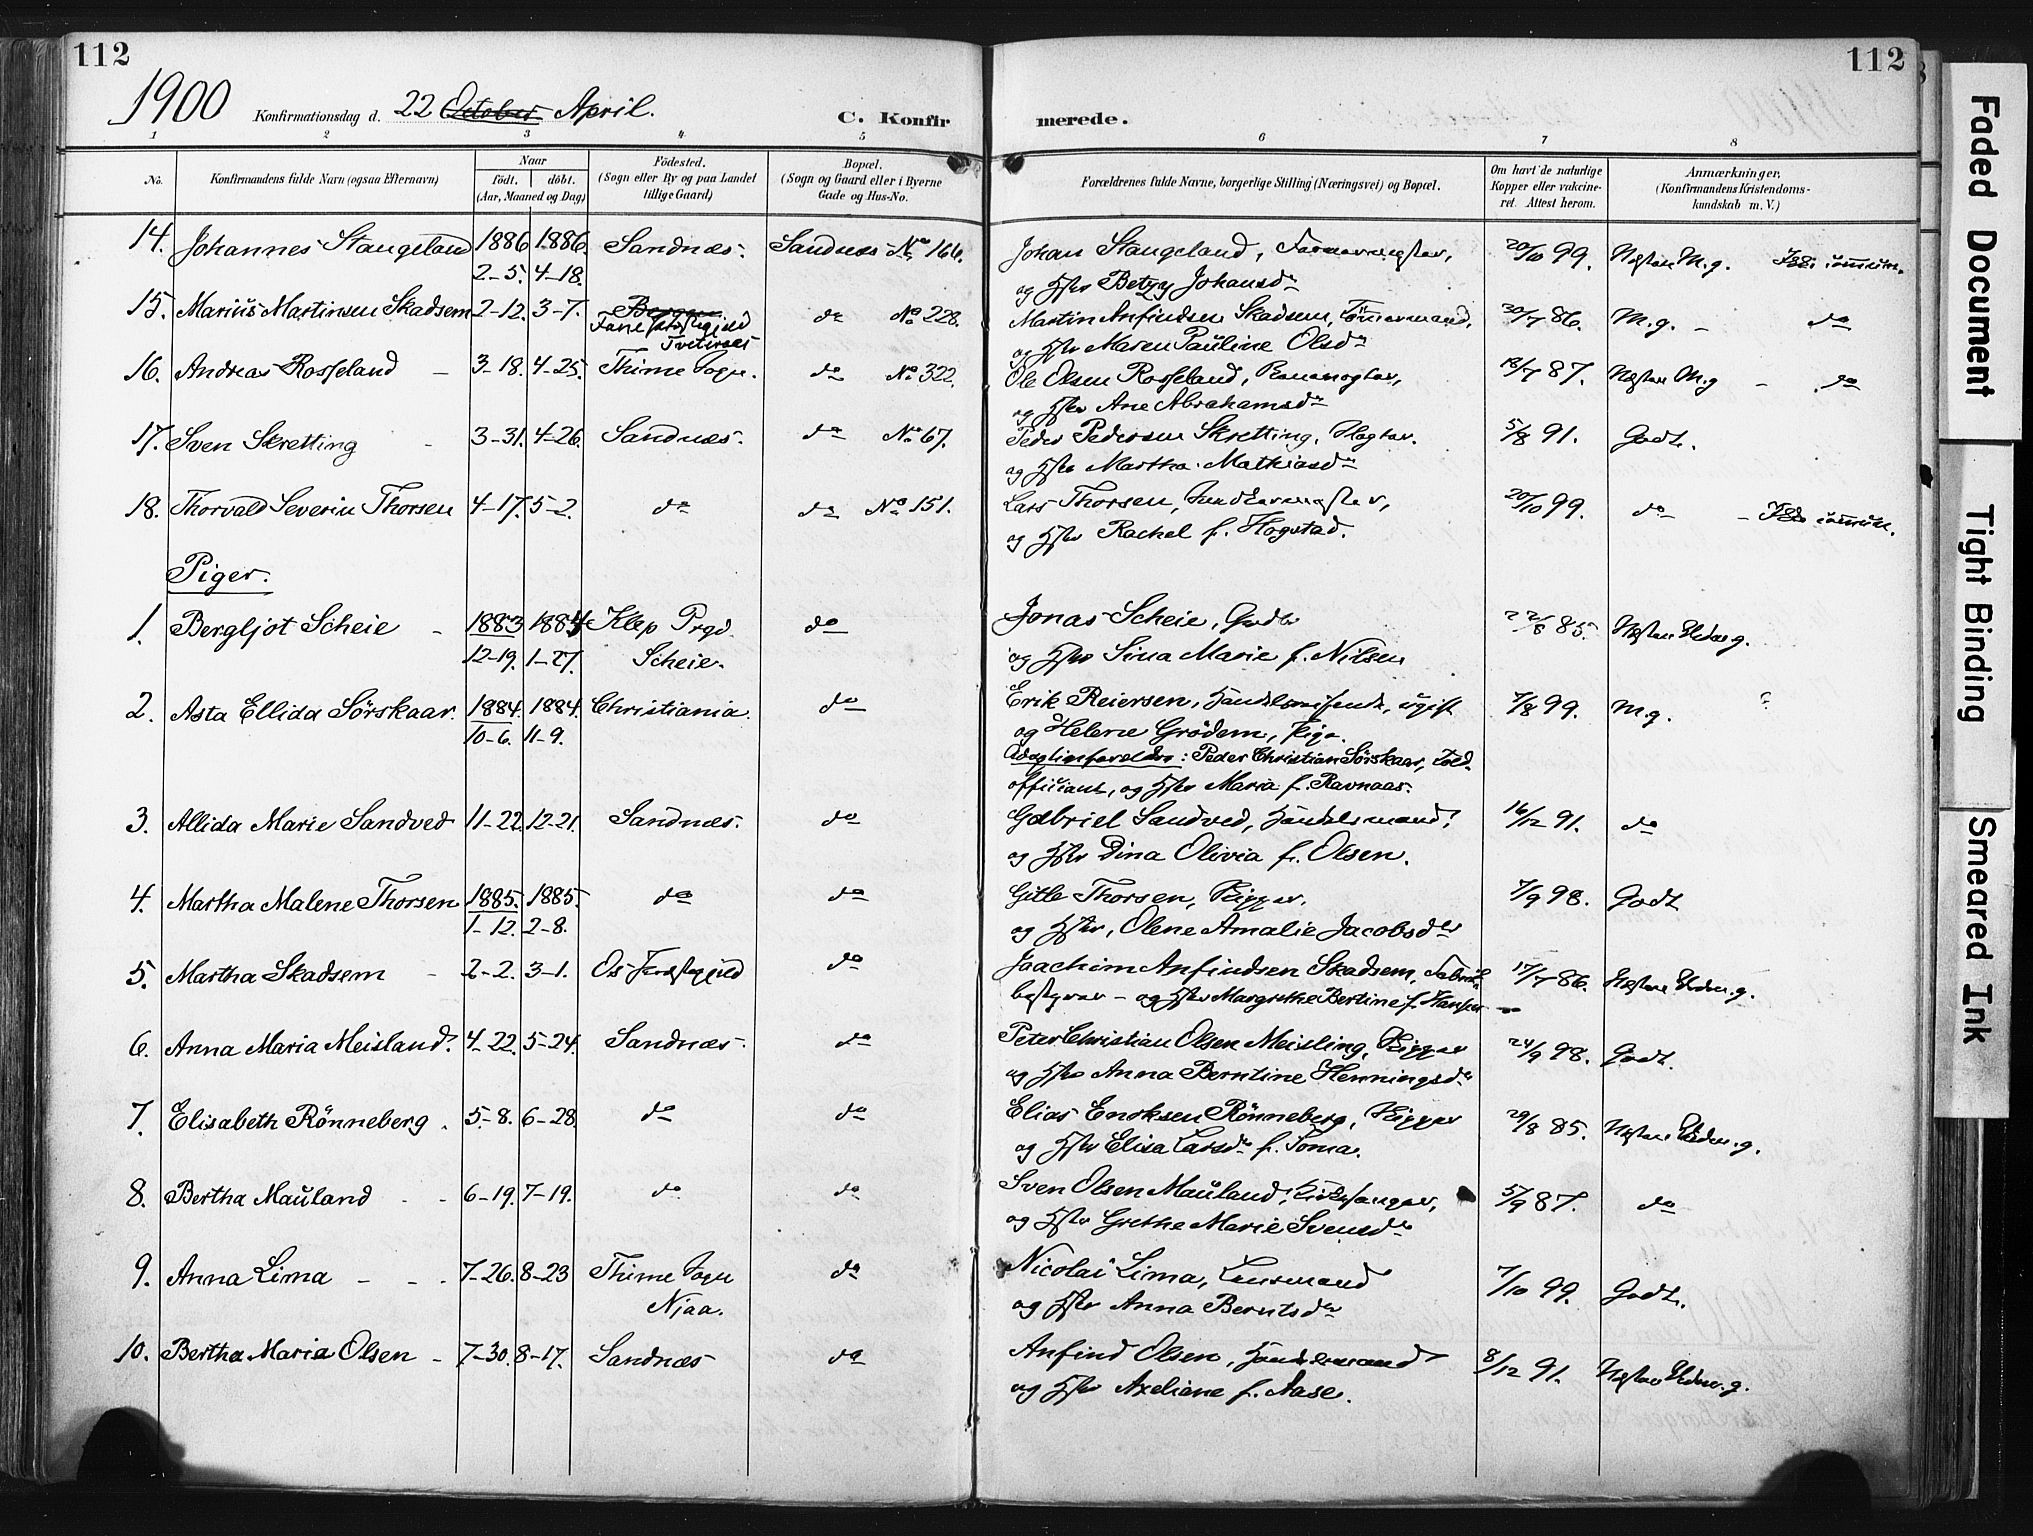 112
112
1900 Konfirmationsdag d. 22 October April.
C. Konfirmerede.
1 2 3 4 5 6 7 8
No. Konfirmandens fulde Navn (ogsaa Efternavn) Naar födt. döbt. (Aar, Maaned og Dag) Födested. (Sogn eller By og paa Landet tillige Gaard) Bopæl. (Sogn og Gaard eller i Byerne Gade og Hus-No. Forældrenes fulde Navne, borgerlige Stilling (Næringsvei) og Bopæl. Om havt de naturlige Kopper eller vakcineret. Attest herom. Anmærkninger. (Konfirmandens Kristendomskundskab m. V.)
14. Johannes Stangeland 1886 1886. Sandnæs. Sandnæs No 166. Johan Stangeland, 20/10 99. Næsten M.g.
2-5. 4-18. og Hstr Betzy Johansdr
15. Marius Martinsen Skadsem 2-12. 3-7. do No 228. Martin Anfindsen Skadsem, Tömmermand, 20/7 86. M.g. - do
Fane Præstegjeld
og Hstr Maren Pauline Olsdr
16. Andreas Rosseland - 3-18. 4-25. Thime Sogn. do No 322. Ole Olsen Rosseland, 18/7 87. Næsten M.g - do
og Hstr Ane Abrahamsdr
17. Sven Skretting - 3-31. 4-26. Sandnæs. do No 67. Peder Pedersen Skretting, 5/8 91. Godt.
og Hstr Martha Mathiasdr
18. Thorvald Severin Thorsen 4-17. 5-2. do do No 151. Lars Thorsen, 20/10 99. do
og Hstr Rachel f. Hogstad.
Piger.
1. Bergljot Scheie - 1883 1884 Klep Prgd. do Jonas Scheie, 22/8 85. Næsten Udm.g.
12-19. 1-27. Scheie. og Hstr Sina Marie f. Nilsen
2. Asta Ellida Sörskaar. 1884. 1884. Christiania. do Erik Reiersen, Handelsreisende, ugift 7/8 99. M.g. ?
10-6. 11-9. og Helene Grödem, Pige.
Adoptivforældre: Peder Christian Sörskaar, Told-
officiant, og Hstr Maria f. Ravnaas.
3. Allida Marie Sandved 11-22. 12-21. Sandnæs. do Gabriel Sandved, Handelsmand, 16/12 91. do
og Hstr Dina Olivia f. Olsen.
4. Martha Malene Thorsen 1885. 1885. do do Gitle Thorsen, 7/9 98. Godt
1-12. 2-8. og Hstr, Olene Amalie Jacobsdtr
5. Martha Skadsem - 2-2. 3-1. Os Præstegjeld do Joachim Anfindsen Skadsem, Fabrik- 17/7 86. Næsten Udm.g.
bestyrer - og Hstr Margrethe Bertine f. Hansen
6. Anna Maria Meisland. 4-22. 5-24. Sandnæs. do Peter Christian Olsen Meisling, 24/9 98. Godt.
og Hstr Anna Berntine Henningsdtr
7. Elisabeth Rönneberg. 5-8. 6-28. do do Elias Enoksen Rönneberg, 29/8 85. Næsten Udm.g.
og Hstr Elisa Larsdr f. Soma.
8. Bertha Mauland - - 6-19. 7-19. do do Sven Olsen Mauland, Kirkesanger, 5/9 87. do
og Hstr Grethe Marie Svensdtr
9. Anna Lima - - - 7-26. 8-23 Thime Sogn do Nicolai Lima, Lensmand 7/10 99. Godt.
Njaa. og Hstr Anna Berntsdtr
10. Bertha Maria Olsen - 7-30. 8-17. Sandnæs do Anfind Olsen, Handelsmand 8/12 91. Næsten Udm.g.
og Hstr Axeliane f. Aase.
Faded Document
Tight Binding
Smeared Ink